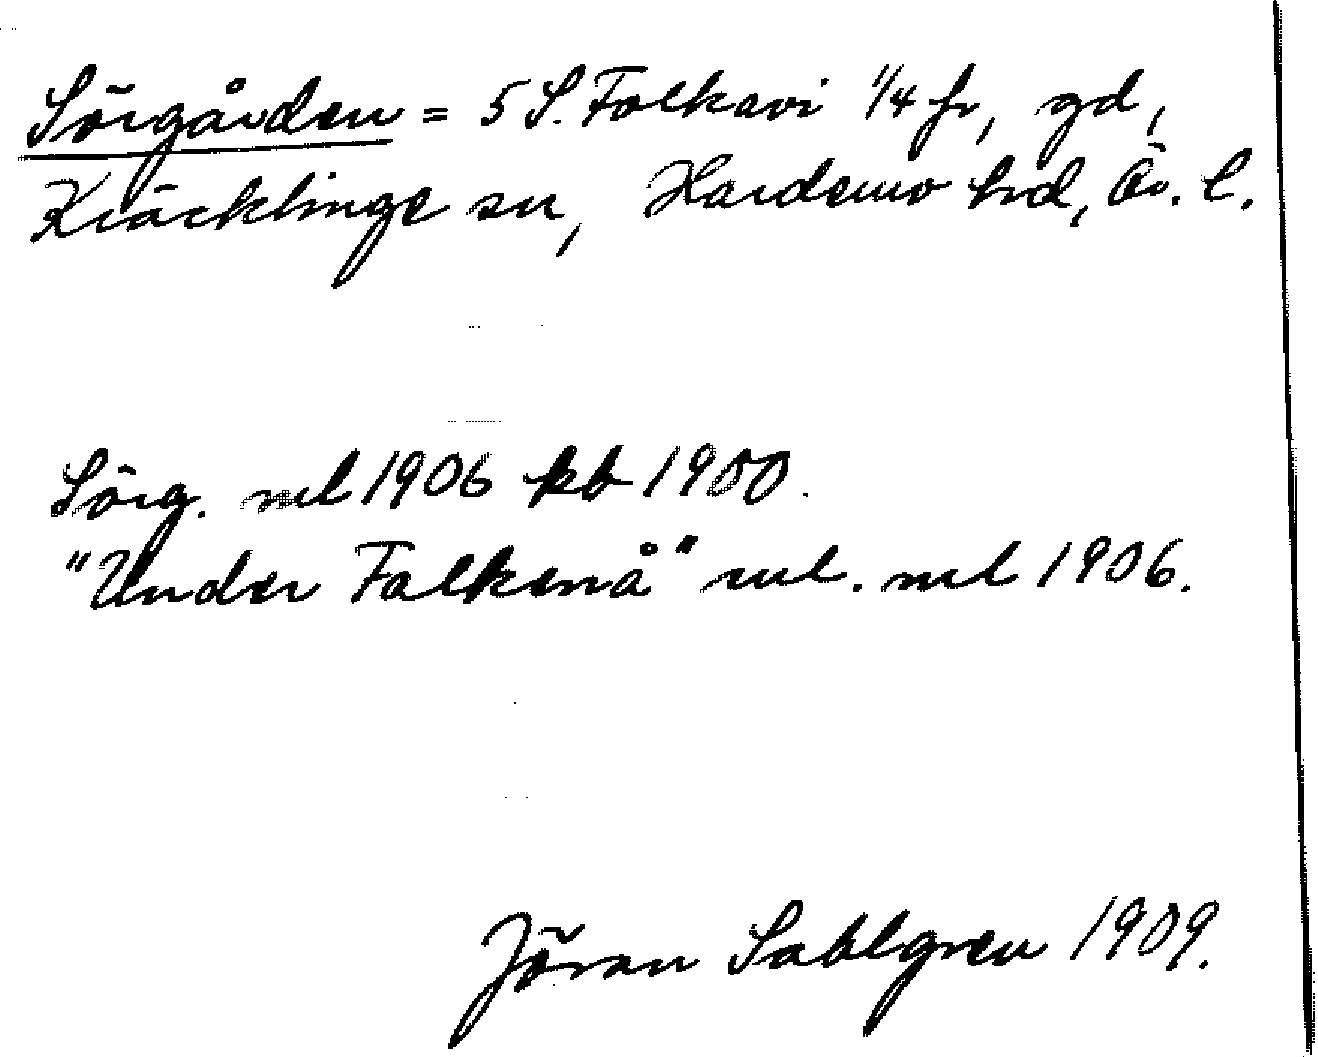 Sörgården = 5 S. Folkavi 1/4 fr, gd,
Kräcklinge sn, Hardemo hd, Ör. l.
Sörg. ml 1906 kb 1900.
"Under Falkenå" ml 1906.
Jöran Sahlgren 1909.